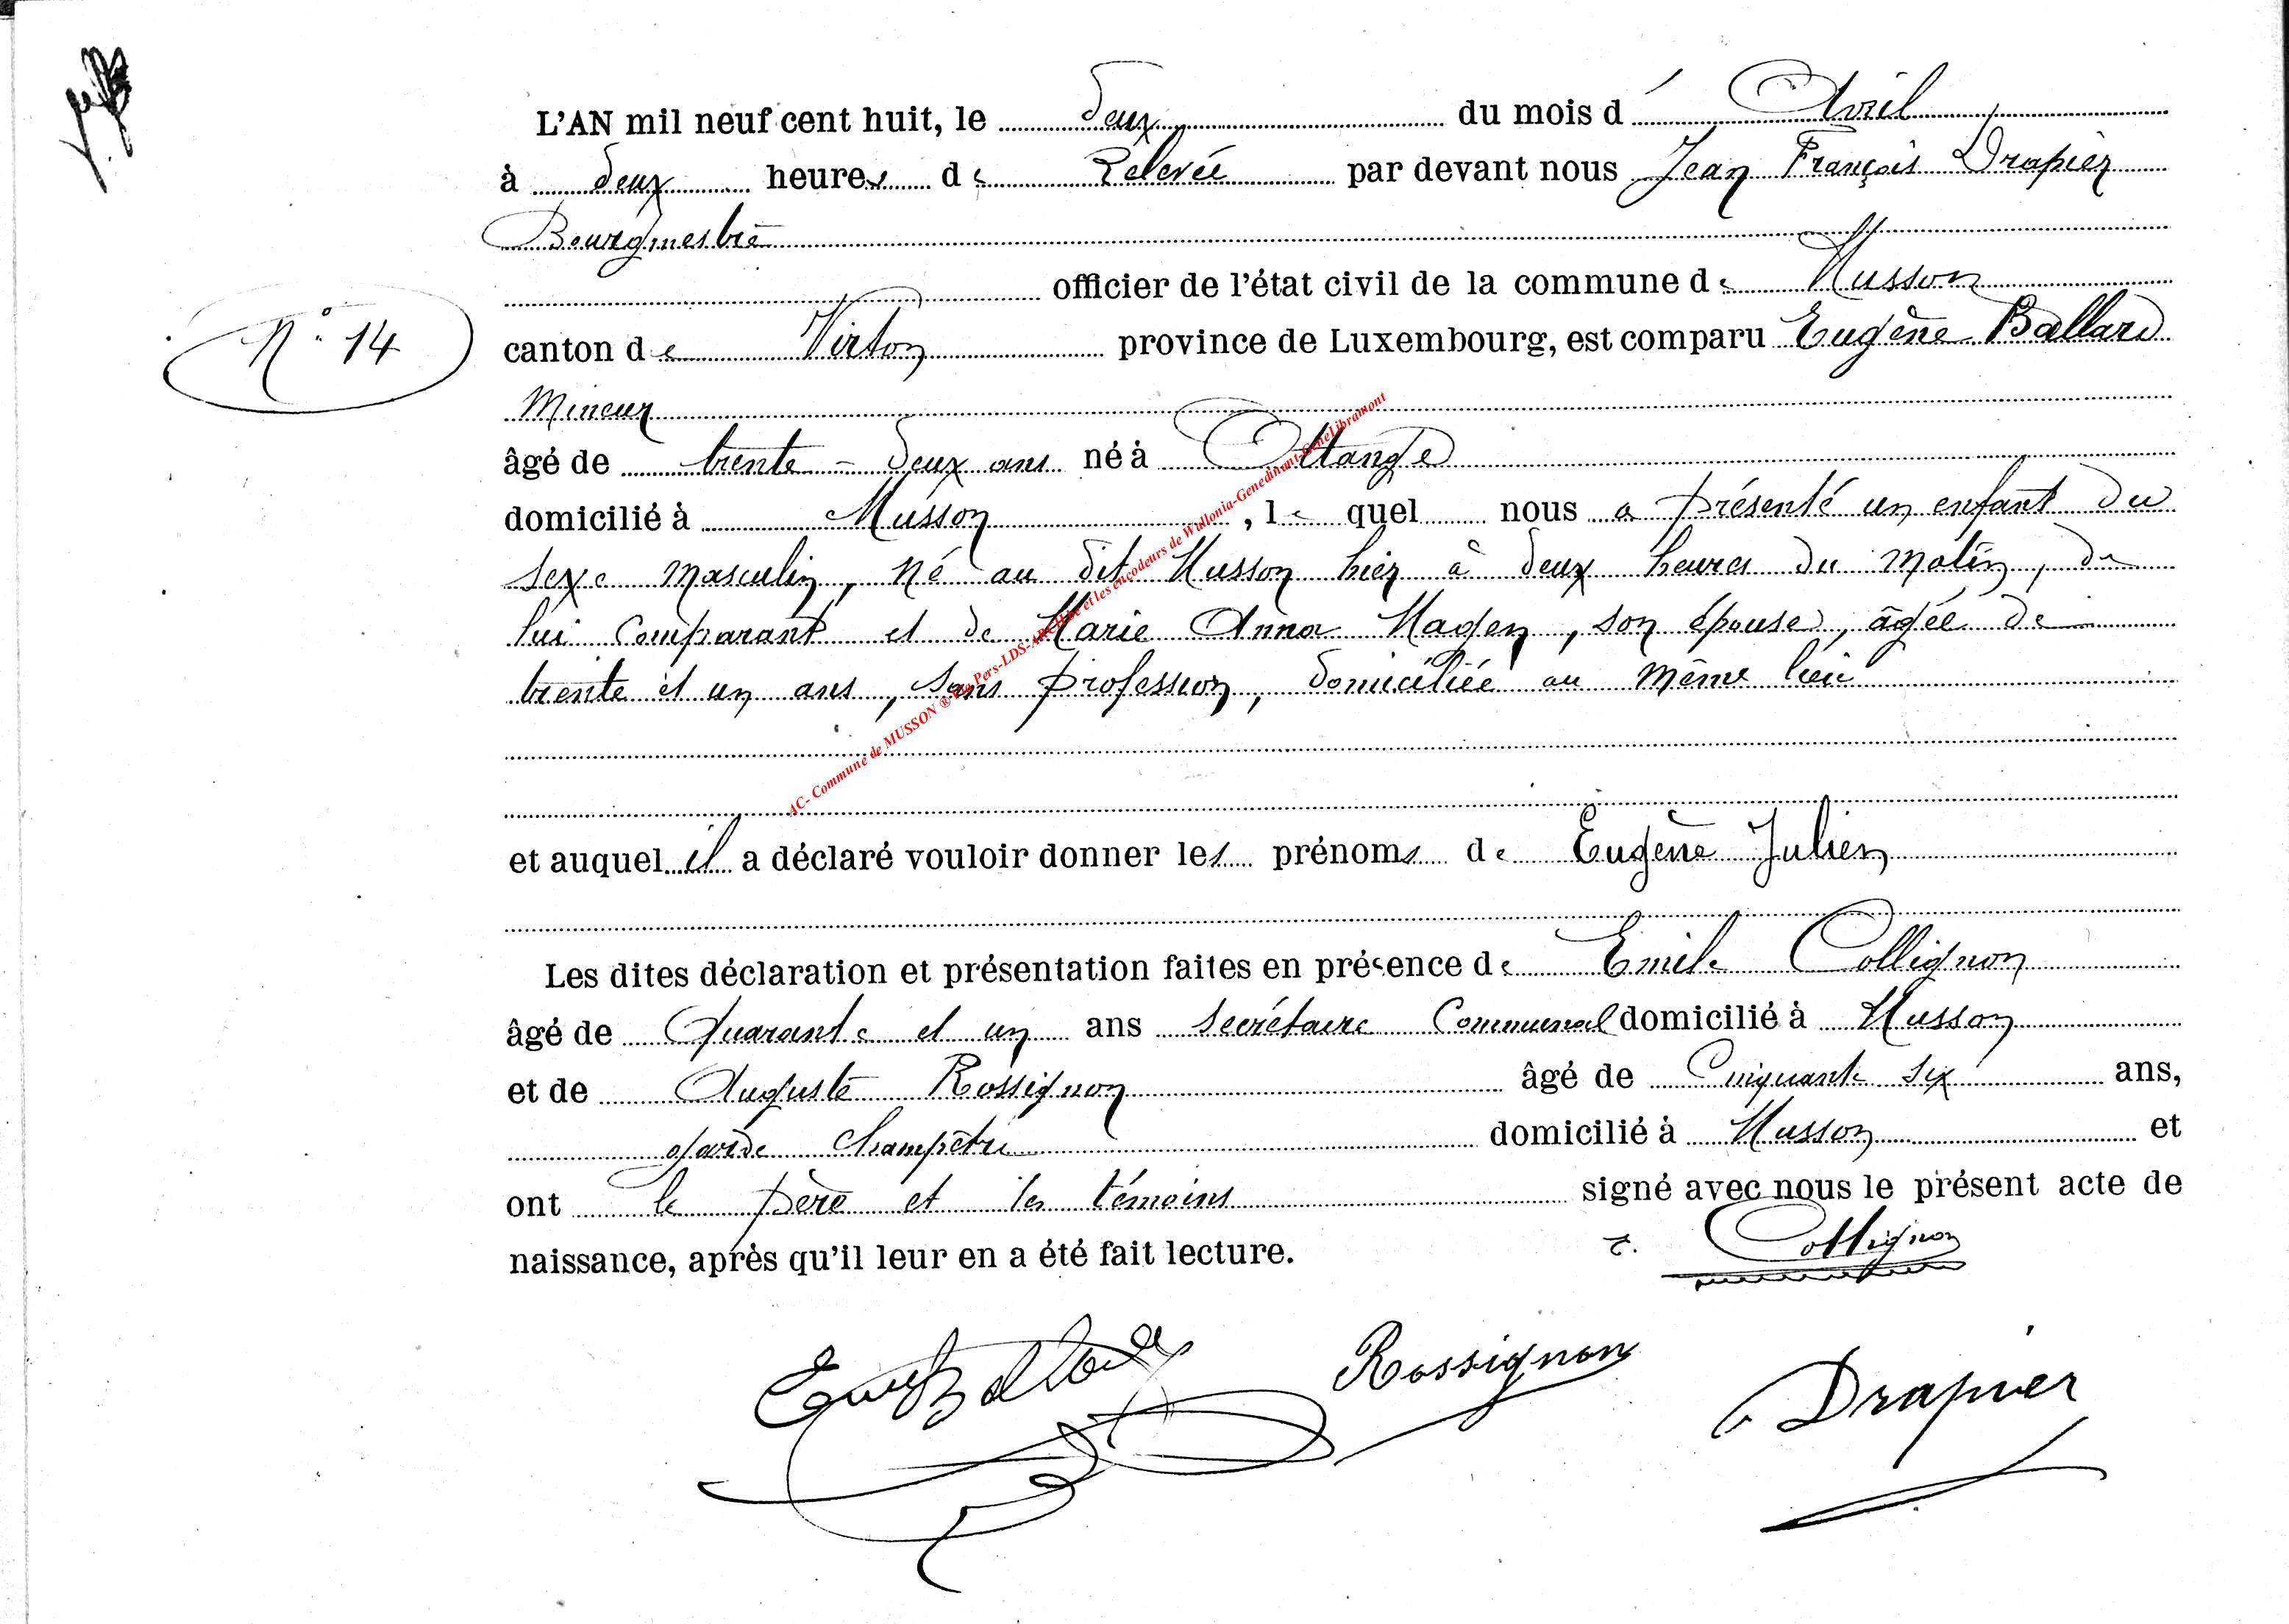 L'AN mil neuf cent huit, le deux du mois d'Avril
à deux heures de Relevée par devant nous Jean François Drapier
Bourgmestre
officier de l'état civil de la commune de Musson
N° 14
canton de Virton province de Luxembourg, est comparu Eugène Ballard
Mineur
âgé de trente-deux ans né à Ottange
domicilié à Musson, lequel nous a présenté un enfant du
sexe masculin, né au dit Musson hier à deux heures du matin, de
lui Comparant et de Marie Anna Hagen, son épouse, âgée de
trente et un ans, sans profession, domiciliée au même lieu
AC- Commune de MUSSON ® LDS- et les encodeurs de Wallonia-Genedinant-GeneLibramont
et auquel il a déclaré vouloir donner les prénoms de Eugène Julien
Les dites déclaration et présentation faites en présence de Emile Collignon
âgé de Quarante et un ans secrétaire Communal domicilié à Musson
et de Auguste Rossignon âgé de Cinquante six ans,
garde champêtre domicilié à Musson et
ont le père et les témoins signé avec nous le présent acte de
naissance, après qu'il leur en a été fait lecture.
E. Collignon
Rossignon
Drapier